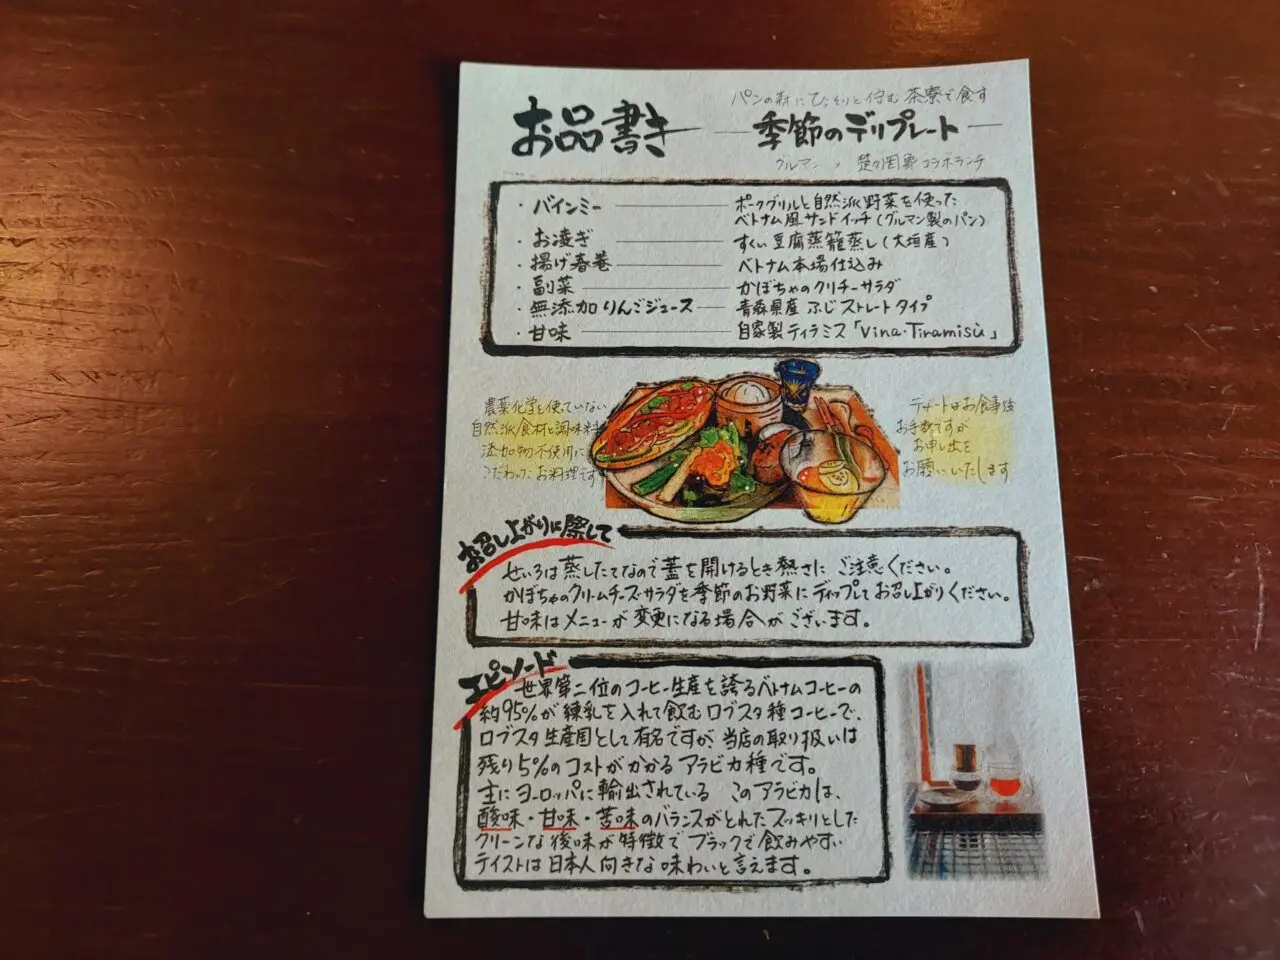 お品書き
パンの森にひっそりと佇む茶寮で食す
季節のデリプレート
グルマン × 楚々囲寮コラボランチ
・バインミー ポークグリルと自然派野菜を使った
ベトナム風サンドイッチ(グルマン製のパン)
・お凌ぎ すくい豆腐蒸籠蒸し(大垣産)
・揚げ春巻 ベトナム本場仕込み
・副菜 かぼちゃのクリチーサラダ
・無添加りんごジュース 青森県産ふじストレートタイプ
・甘味 自家製ティラミス「Vina・Tiramisù」
農薬化学を使っていない
自然派食材と調味料
添加物不使用に
こだわったお料理です
デザートはお食事後
お手数ですが
お申し出を
お願いいたします
お召し上がりに際して
せいろは蒸したてなので蓋を開けるとき熱さにご注意ください。
かぼちゃのクリームチーズサラダを季節のお野菜にディップしてお召し上がりください。
甘味はメニューが変更になる場合がございます。
エピソード
世界第二位のコーヒー生産を誇るベトナムコーヒーの
約95%が練乳を入れて飲むロブスタ種コーヒーで、
ロブスタ生産国として有名ですが、当店の取り扱いは
残り5%のコストがかかるアラビカ種です。
主にヨーロッパに輸出されている このアラビカは、
酸味・甘味・苦味のバランスがとれたスッキリとした
クリーンな後味が特徴でブラックで飲みやすい
テイストは日本人向きな味わいと言えます。